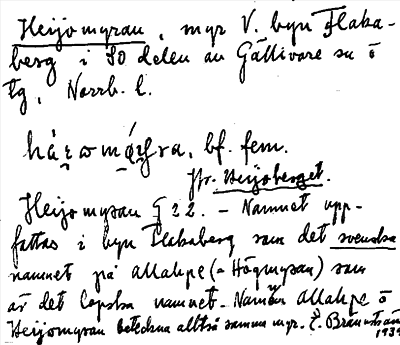 Heijomyran, myr V. byn Flaka-
berg i SO delen av Gällivare sn o
tg, Norrb. l.
bf. fem.
Jfr. Heijoberget.
Heijomyran G 22. – Namnet upp-
fattas i byn Flakaberg som det svenska
namnet på allahpe (= Högmyran) som
är det lapska namnet. Namnen allahpe o
Heijomyran beteckna alltså samma myr. E. Brännström
1939